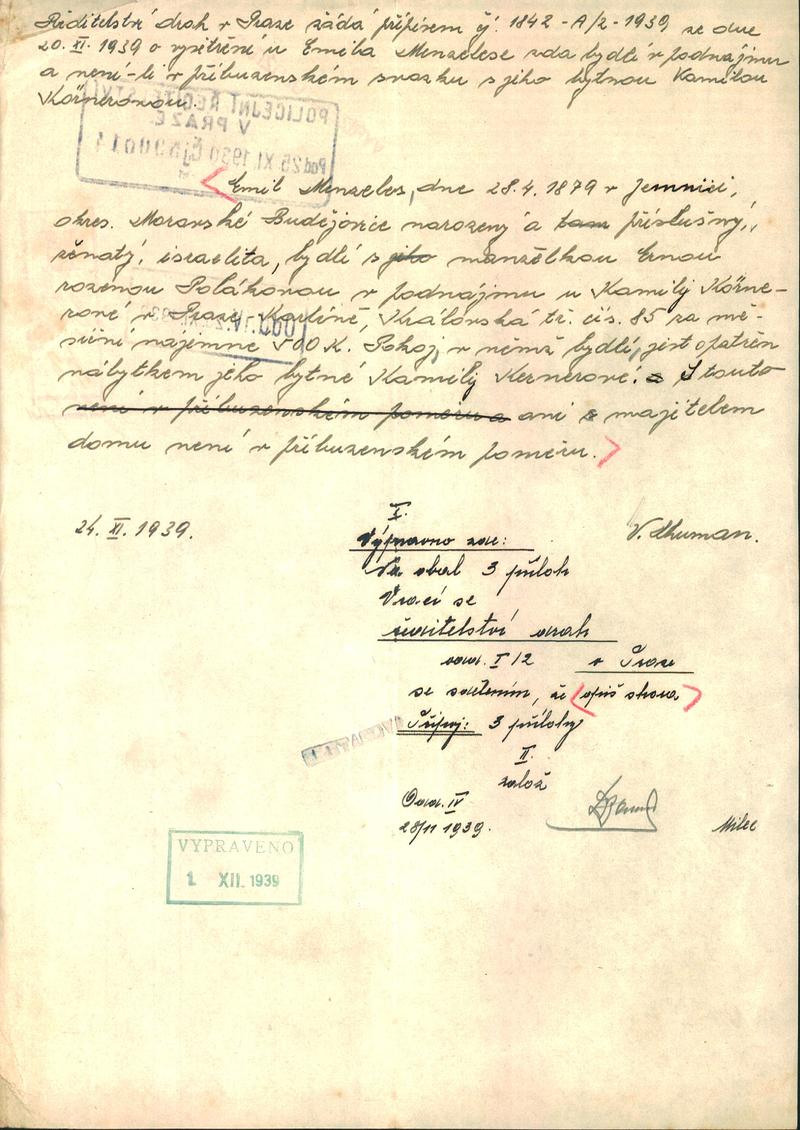 Ředitelství drah v Praze žádá přípisem čj. 1842-A/2-1939 ze dne
20. XI. 1939 o vyšetření u Emila Menzelese zda bydlí v podnájmu
a není-li v příbuzenském svazku s jeho bytnou Kamilou
Körnerovou.
POLICEJNÍ ŘEDITELSTVÍ
V PRAZE
Emil Menzeles, dne 28.4. 1879 v Jemnici,
okres. Moravské Budějovice narozený a tam příslušný,
ženatý, israelita, bydlí s jeho manželkou Ernou
rozenou Polákovou v podnájmu u Kamily Körne-
rové v Praze Karlíně, Královská tř. čís. 85 za mě-
síční nájemné 500 K. Pokoj, v němž bydlí, jest opatřen
nábytkem jeho bytné Kamily Kernerové. S touto
není v příbuzenském poměru a ani s majitelem
domu není v příbuzenském poměru.
24. XI. 1939.
I.
Výpravno zde:
Na obal 3 příloh
Vrací se
ředitelství drah
odd. I/2 v Praze
se sdělením, že opiš shora
Připoj: 3 přílohy
II.
založ
Odd. IV
28/11 1939.
VYPRAVENO
1 XII. 1939